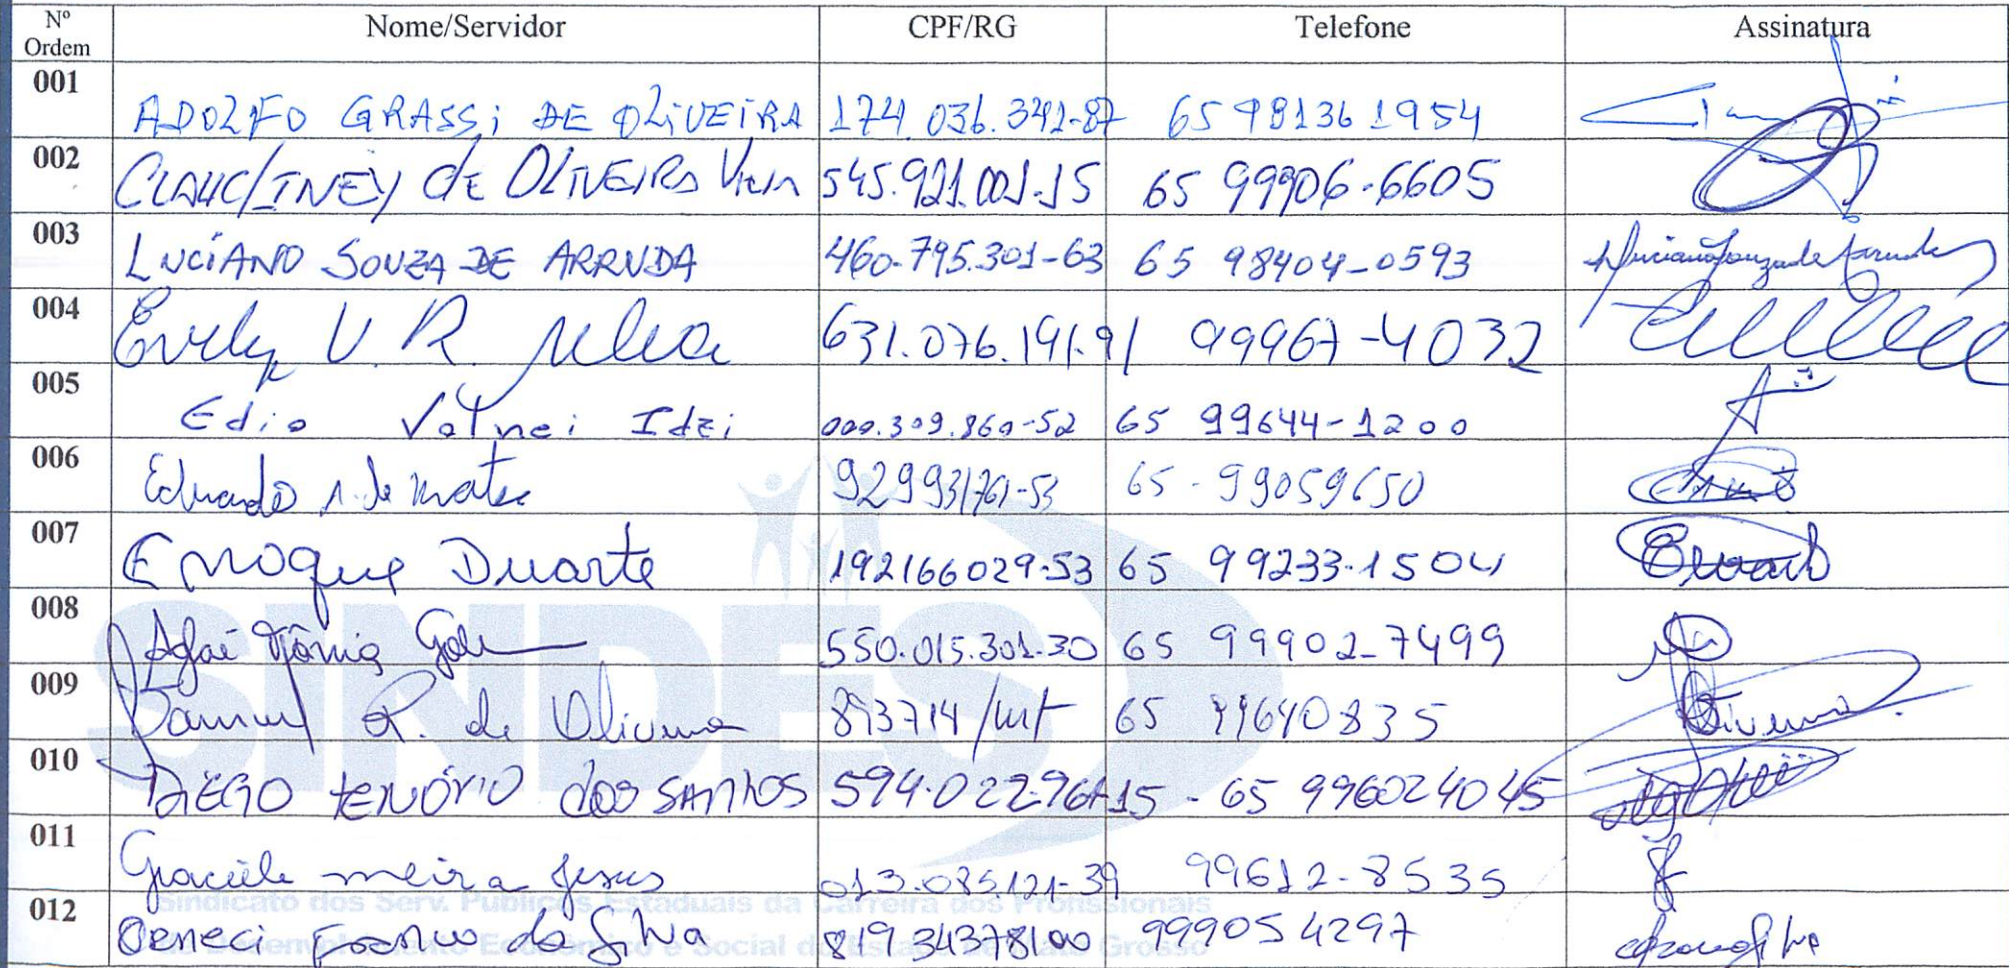 Nº Ordem Nome/Servidor CPF/RG Telefone Assinatura
001 ADOLFO GRASSi DE OLiVEiRA 174.036.341-87 65 981361954
002 CLAUCINEY de OLIVEIRA 545.921.001-15 65 99906-6605
003 LUCiANO SOUZA DE ARRUDA 460.795.301-63 65 98404-0593 Luciano Souza de Arruda
004 V. R. 631.076.191.91 99967-4032
005 Edio Volnei Idzi 000.309.860-52 65 99644-1200
006 Eduardo de 65-99059650
007 Enoque Duarte 192166029-53 65 99233-1504
008 Aglaé Tânia 550.015.301-30 65 99902-7499
009 R. de Oliveira 893714/mt 65 99640835
010 DIEGO TENÓRIO dos SANTOS 65 996024045
011 Graciele meira Jesus 013.085.121-39 99612-8535
SINDES
Sindicato dos Serv. Públicos Estaduais da Carreira dos Profissionais
012 da Silva 819 343781 00 999054297
de Desenvolvimento Econômico e Social do Estado de Mato Grosso